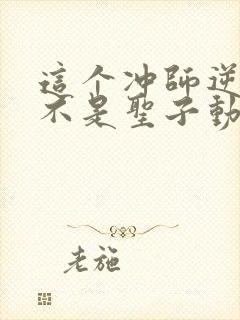 這个冲師逆
不是聖子動
老施